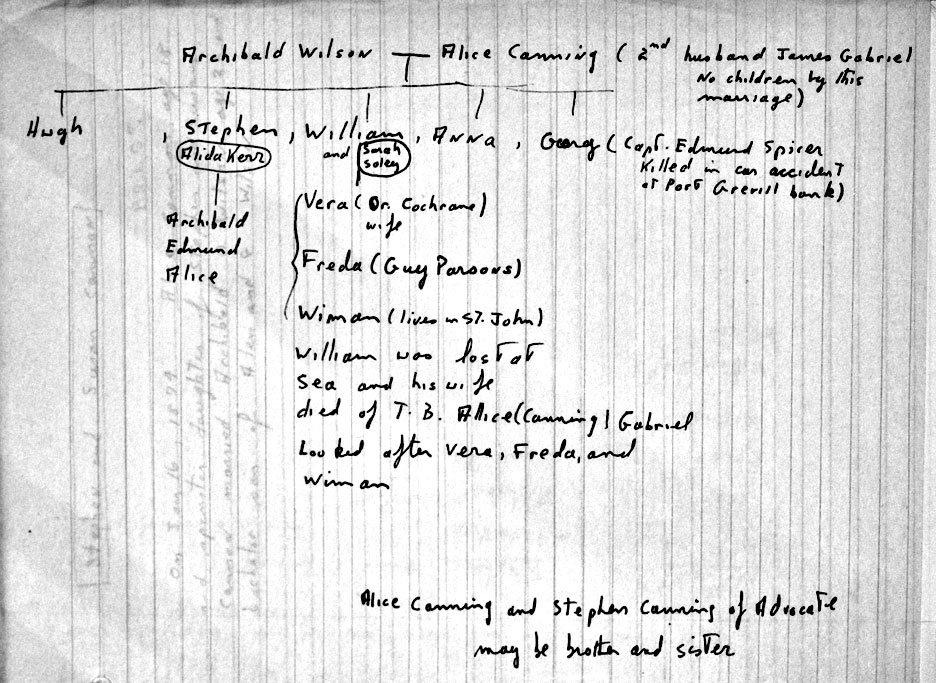 Archibald Wilson — Alice Canning (2nd husband James Gabriel
No children by this
marriage)
Hugh , Stephen, William, Anna, Georg (Capt. Edmund Spicer
Alida Kerr and Sarah
Soley
Killed in car accident
at Port Grevill bank)
Archibald
Edmund
Alice
Vera (Dr. Cochrane)
wife
Freda (Guy Parsons)
Wiman (lives in St. John)
William was lost at
sea and his wife
died of T. B. Allice (Canning) Gabriel
Looked after Vera, Freda, and
Wiman
Alice Canning and Stephen Canning of Advocate
may be brother and sister